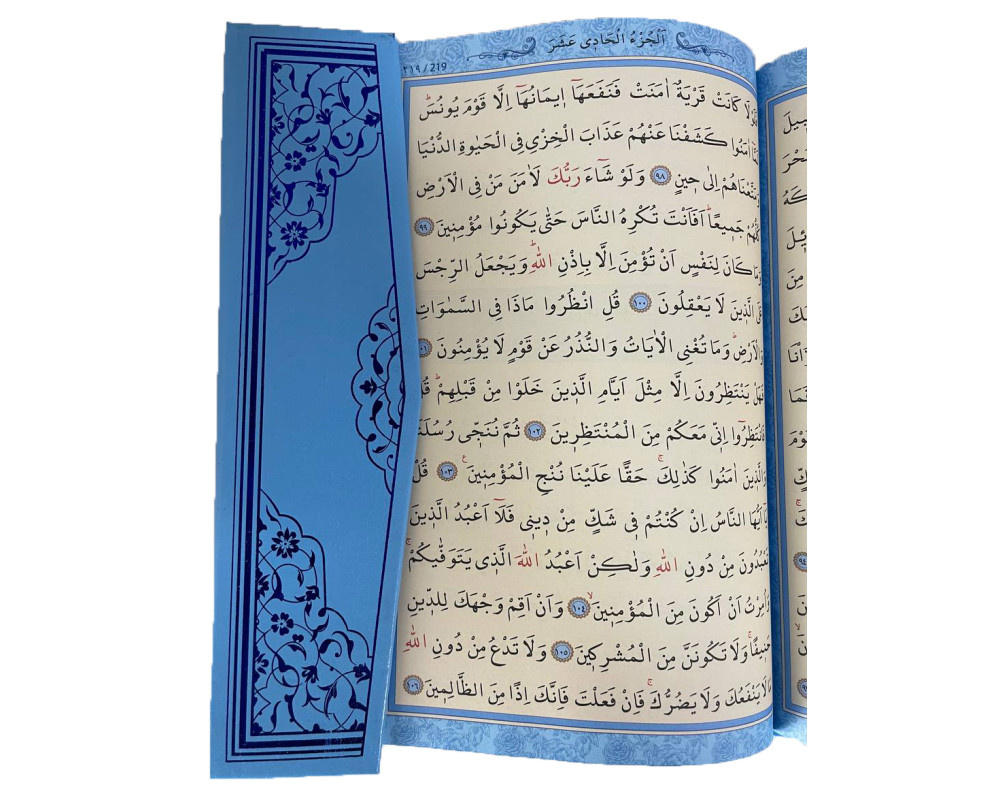 اَلْجُزْءُ الْحَادِى عَشَرَ
٢١٩ / 219
كَانَتْ قَرْيَةٌ اٰمَنَتْ فَنَفَعَهَٓا ا۪يمَانُهَٓا اِلَّا قَوْمَ يُونُسَۜ
اٰمَنُوا كَشَفْنَا عَنْهُمْ عَذَابَ الْخِزْيِ فِي الْحَيٰوةِ الدُّنْيَا
وَمَتَّعْنَاهُمْ اِلٰى ح۪ينٍ ٩٨ وَلَوْ شَٓاءَ رَبُّكَ لَاٰمَنَ مَنْ فِي الْاَرْضِ
كُلُّهُمْ جَم۪يعًاۜ اَفَاَنْتَ تُكْرِهُ النَّاسَ حَتّٰى يَكُونُوا مُؤْمِن۪ينَ ٩٩
وَمَا كَانَ لِنَفْسٍ اَنْ تُؤْمِنَ اِلَّا بِاِذْنِ اللّٰهِۜ وَيَجْعَلُ الرِّجْسَ
عَلَى الَّذ۪ينَ لَا يَعْقِلُونَ ١٠٠ قُلِ انْظُرُوا مَاذَا فِي السَّمٰوَاتِ
وَالْاَرْضِۜ وَمَا تُغْنِي الْاٰيَاتُ وَالنُّذُرُ عَنْ قَوْمٍ لَا يُؤْمِنُونَ ١٠١
فَهَلْ يَنْتَظِرُونَ اِلَّا مِثْلَ اَيَّامِ الَّذ۪ينَ خَلَوْا مِنْ قَبْلِهِمْۜ قُلْ
فَانْتَظِرُٓوا اِنّ۪ي مَعَكُمْ مِنَ الْمُنْتَظِر۪ينَ ١٠٢ ثُمَّ نُنَجّ۪ي رُسُلَنَا
وَالَّذ۪ينَ اٰمَنُوا كَذٰلِكَۚ حَقًّا عَلَيْنَا نُنْجِ الْمُؤْمِن۪ينَ۟ ١٠٣ قُلْ
يَٓا اَيُّهَا النَّاسُ اِنْ كُنْتُمْ ف۪ي شَكٍّ مِنْ د۪ين۪ي فَلَٓا اَعْبُدُ الَّذ۪ينَ
تَعْبُدُونَ مِنْ دُونِ اللّٰهِ وَلٰكِنْ اَعْبُدُ اللّٰهَ الَّذ۪ي يَتَوَفّٰيكُمْۚ
وَاُمِرْتُ اَنْ اَكُونَ مِنَ الْمُؤْمِن۪ينَۙ ١٠٤ وَاَنْ اَقِمْ وَجْهَكَ لِلدّ۪ينِ
حَن۪يفًاۚ وَلَا تَكُونَنَّ مِنَ الْمُشْرِك۪ينَ ١٠٥ وَلَا تَدْعُ مِنْ دُونِ اللّٰهِ
مَا لَا يَنْفَعُكَ وَلَا يَضُرُّكَۚ فَاِنْ فَعَلْتَ فَاِنَّكَ اِذًا مِنَ الظَّالِم۪ينَ ١٠٦